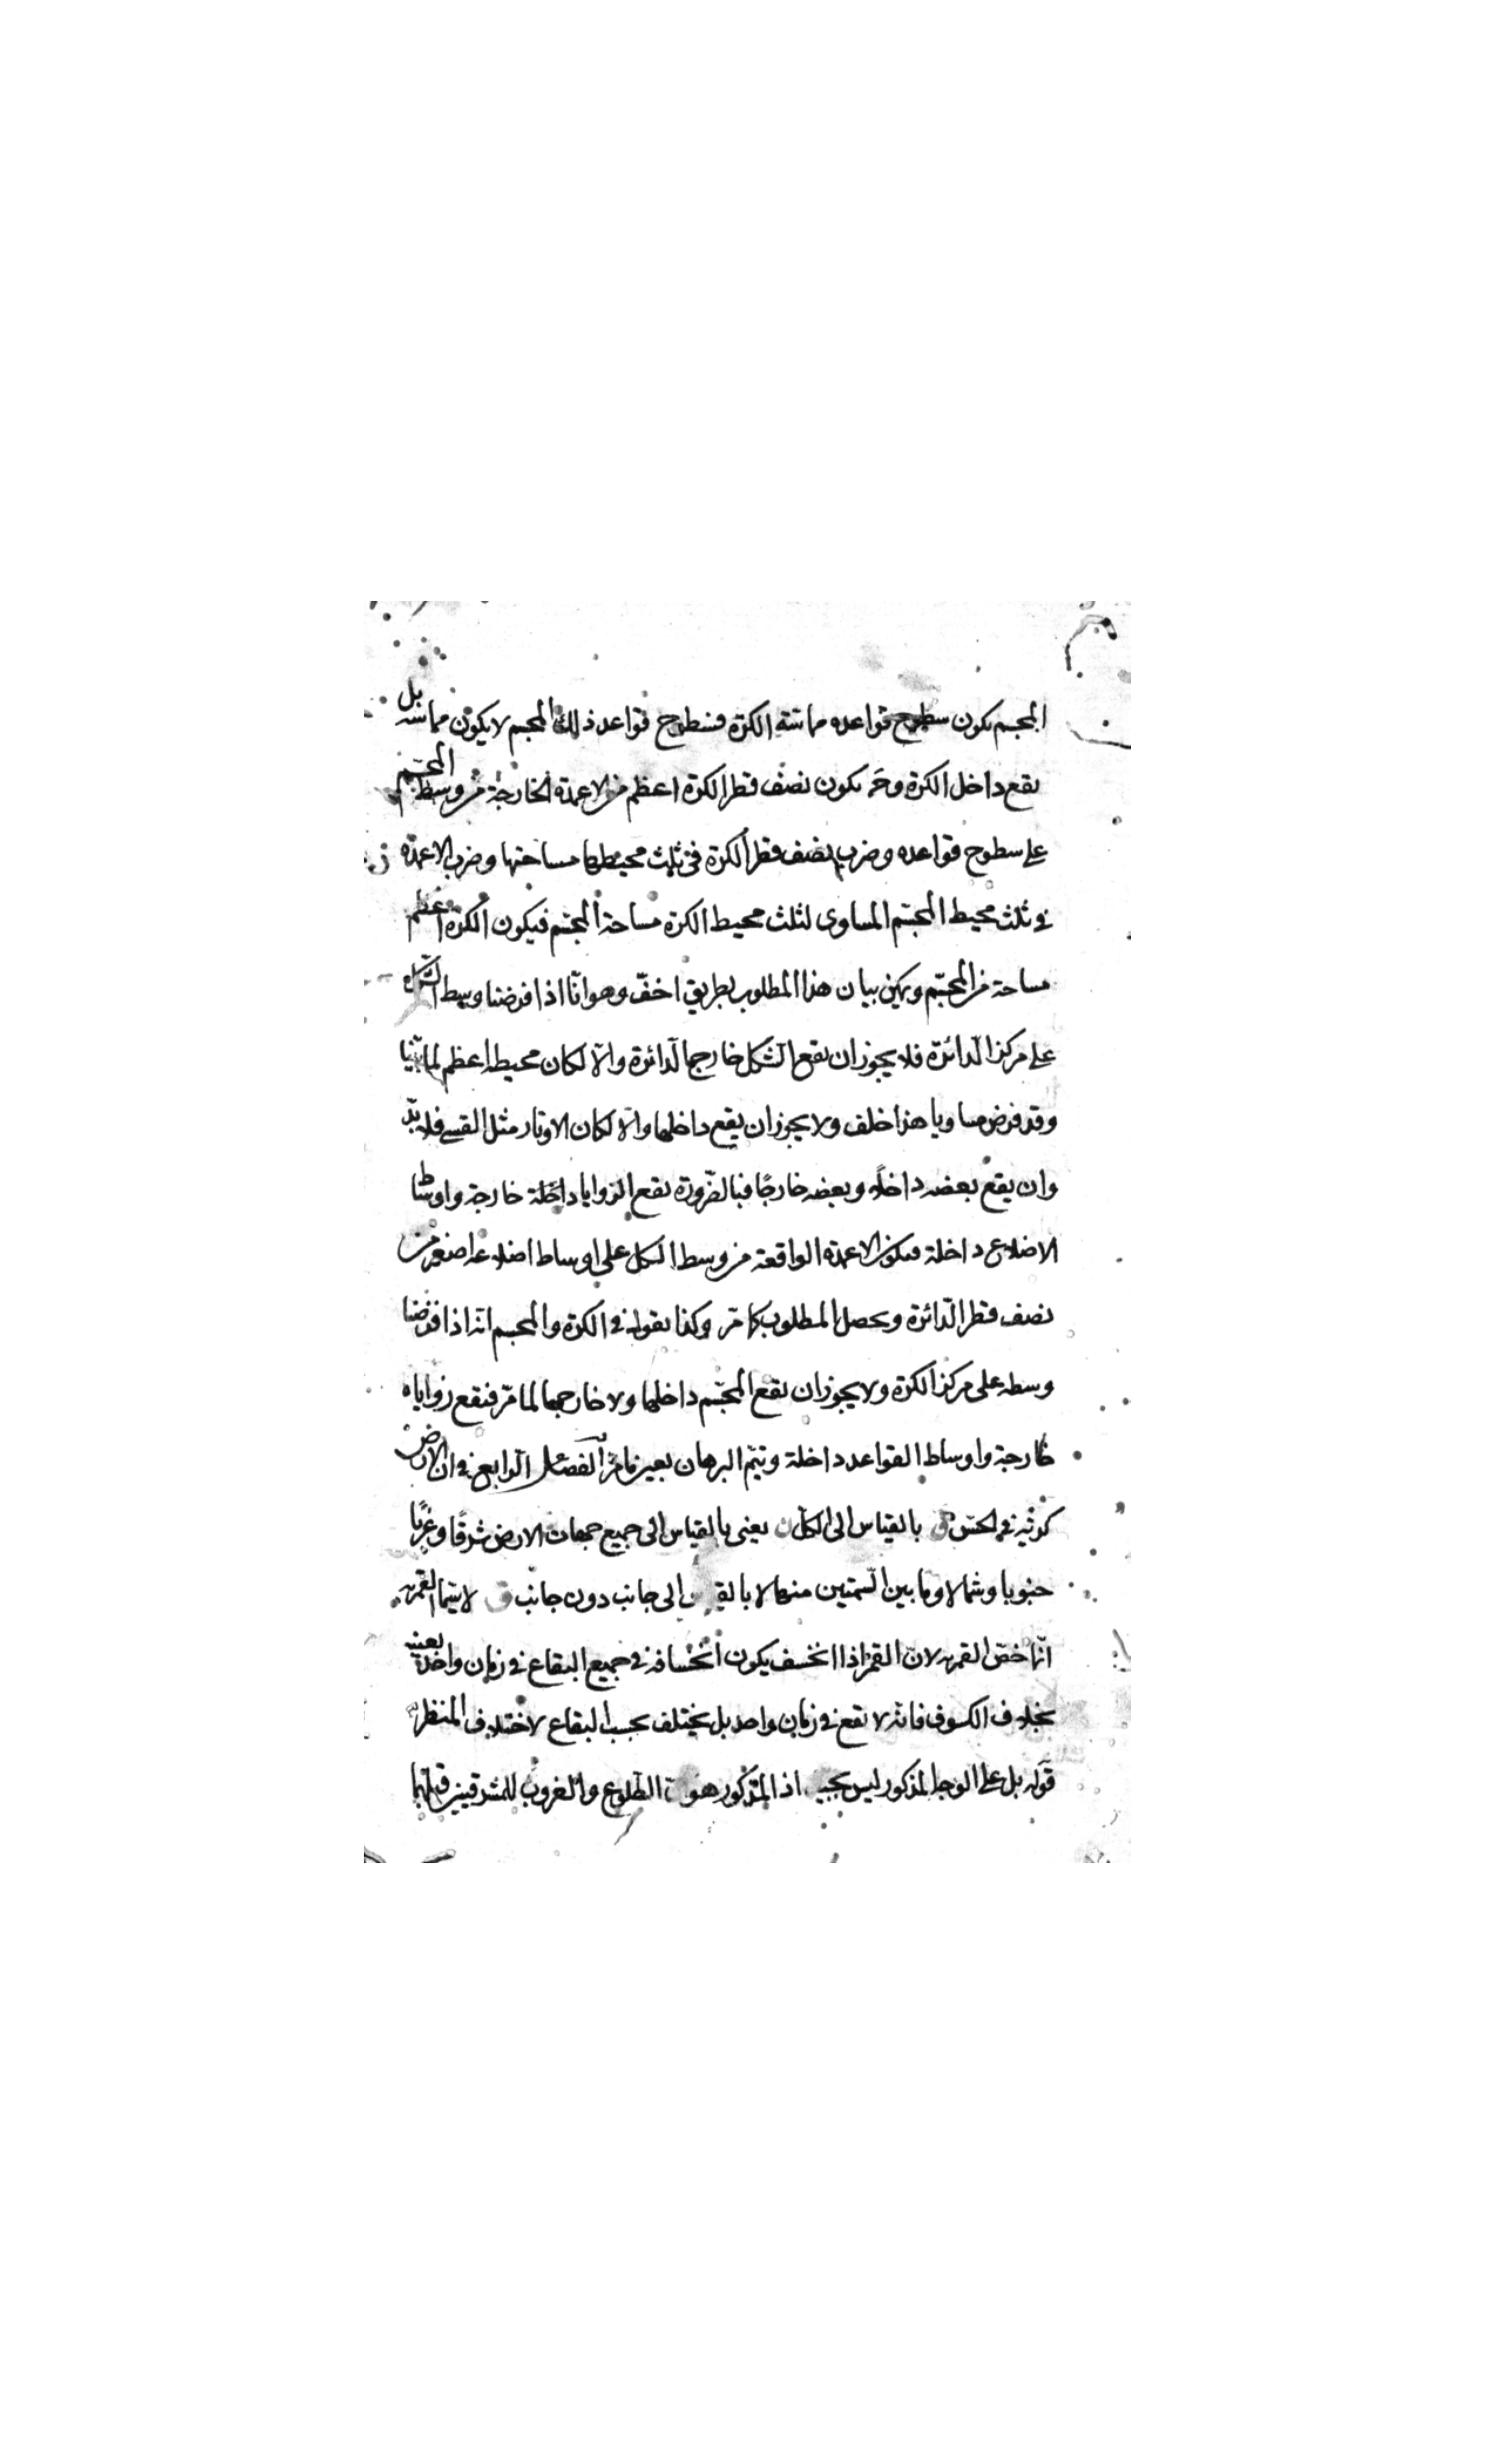 المجسم يكون سطوح قواعده مماسة الكرة فسطوح قواعد ذلك المجسم لا يكون مماسة بل
يقع داخل الكرة وح يكون نصف قطر الكرة اعظم من الاعمدة الخارجة من وسط المجسّم
على سطوح قواعده وضرب نصف قطر الكرة في ثلث محيطها مساحتها وضرب الاعمدة
في ثلث محيط المجسّم المساوى لثلث محيط الكرة مساحة المجسّم فيكون الكرة اعظم
مساحة من المجسّم ويمكن بيان هذا المطلوب بطريق اخفّ وهو انّا اذا فرضنا وسط الشكل
على مركز الدّائرة فلا يجوز ان يقع الشكل خارج الدّائرة والّا لكان محيطه اعظم لما بيّنا
وقد فرض مساويا هذا خلف ولا يجوز ان يقع داخلها والّا لكان الاوتار مثل القسى فلا بدّ
وان يقع بعضه داخلًا وبعضه خارجًا فبالضّرورة يقع الزوايا داخلة خارجة واوساط
الاضلاع داخلة فيكون الاعمدة الواقعة من وسط الشكل على اوساط اضلاعه اصغر من
نصف قطر الدّائرة ويحصل المطلوب كما مرّ وكذا نقول في الكرة والمجسم انّه اذا فرضنا
وسطه على مركز الكرة ولا يجوز ان يقع المجسّم داخلها ولا خارجها لما مرّ فتقع زواياه
خارجة واوساط القواعد داخلة ويتمّ البرهان بعين ما مرّ الفصل الرابع في ان الارض
كرويّة في الحسّ بالقياس الى الكلّ يعنى بالقياس الى جميع جهات الارض شرقًا وغربًا
جنوبا وشمالا وما بين السّمتين منها لا الى جانب دون جانب لا سيّما القمريّة
انّما خصّ القمرية لانّ القمر اذا انخسف يكون انخسافه في جميع البقاع في زمان واحد بعينه
بخلاف الكسوف فانّه لا يقع في زمان واحد بل يختلف بحسب البقاع لاختلاف المنظر
قوله بل على الوجه المذكور ليس بجيد اذ المذكور هو الطلوع والغروب للمشرقيين قبلهما